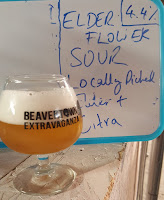 ELDER 4.4%
FLOWER
SOUR
Locally Picked
+
Citra
BEAVERTOWN
EXTRAVAGANZA